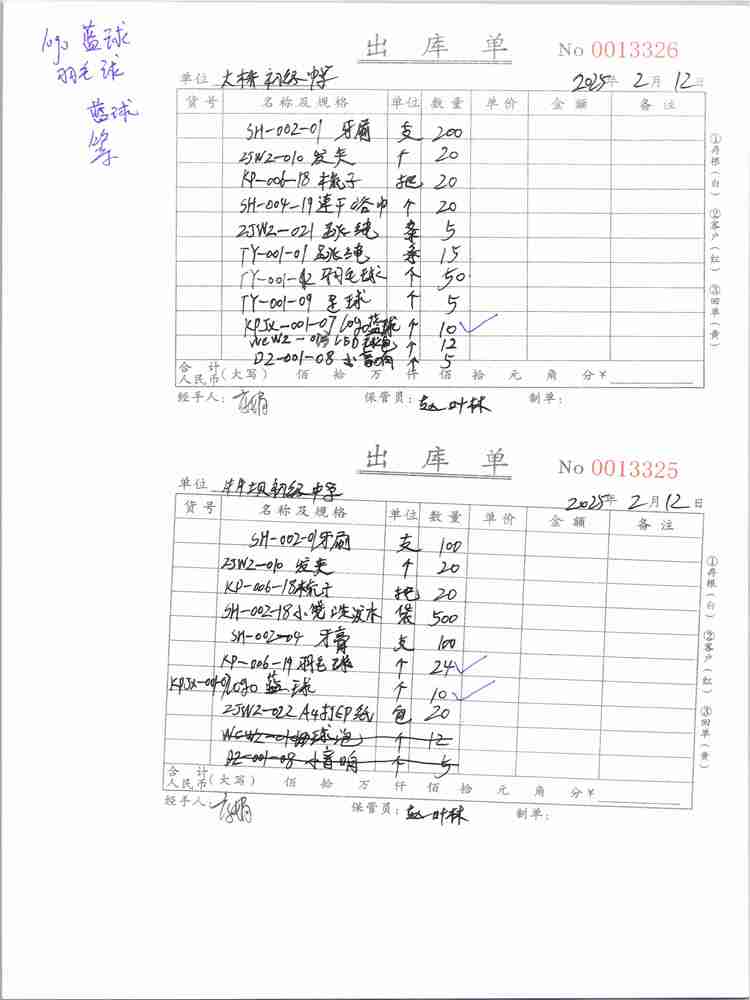 logo 蓝球
羽毛球
蓝球
出库单 No 0013326
单位 大精初级中学 2025年 2月 12日
货号 名称及规格 单位 数量 单价 金额 备注
SH-002-01 牙刷 支 200
ZJWZ-010 发夹 个 20
KP-006-18 梳子 把 20
SH-004-19 速干浴巾 个 20
ZJWZ-021 跳绳 条 5
TY-001-01 跳绳 条 15
TY-001-12 羽毛球 个 50
TY-001-09 足球 个 5
KPJX-001-07 logo蓝球 个 10
球泡 个 12
DZ-001-08 小音响 个 5
合计人民币(大写) 佰 拾 万 仟 佰 拾 元 角 分¥
经手人: 保管员:赵叶林 制单:
①存根(白) ②客户(红) ③回单(黄)
出库单 No 0013325
单位 初级中学 2025年 2月 12日
货号 名称及规格 单位 数量 单价 金额 备注
SH-002-01牙刷 支 100
ZJWZ-010 发夹 个 20
KP-006-18梳子 把 20
SH-002-18小袋洗发水 袋 500
SH-002-04 牙膏 支 100
KP-006-19 羽毛球 个 24
KPJX-001-07 logo 蓝球 个 10
ZJWZ-022 A4打印纸 包 20
球泡 个 12
DZ-001-08 小音响 个 5
合计人民币(大写) 佰 拾 万 仟 佰 拾 元 角 分¥
经手人: 保管员:赵叶林 制单:
①存根(白) ②客户(红) ③回单(黄)